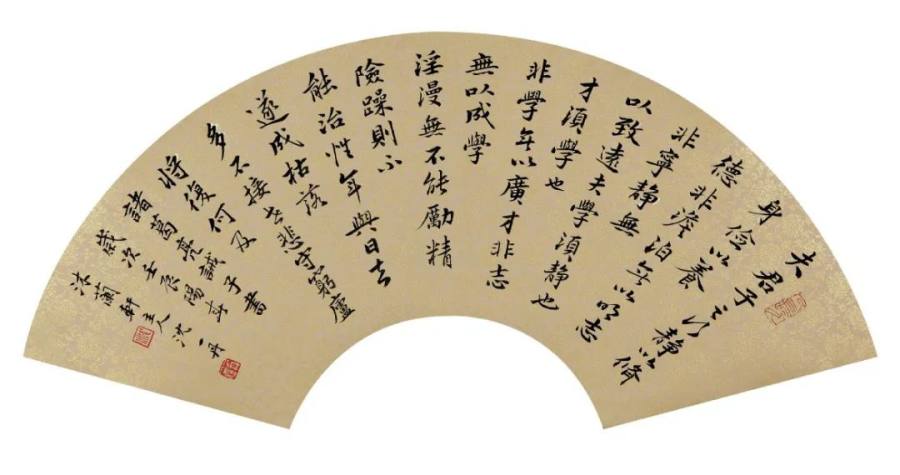 夫君子之行静以脩
身儉以養
德非澹泊無以明志
非寧静無
以致遠夫學須静也
才須學也
非學無以廣才非志
無以成學
淫漫無不能勵精
險躁則不
能治性年與日去
遂成枯落
多不接世悲守窮廬
將復何及
諸葛亮誡子書
歲次壬辰陽春
沐蘭軒主人沈一丹